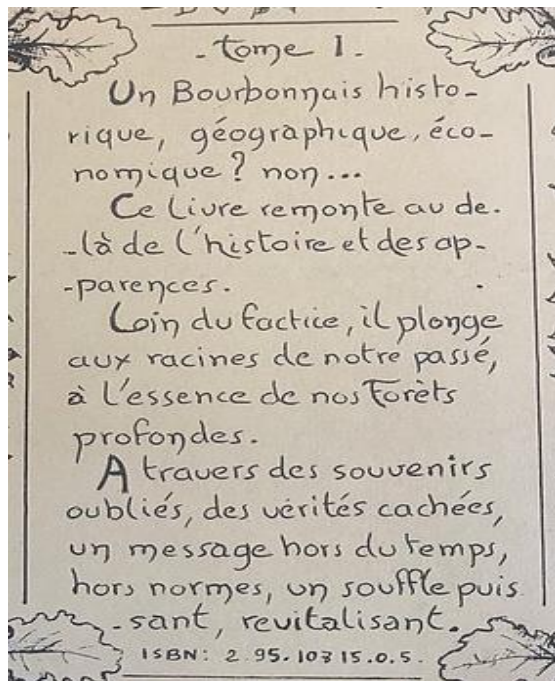 - tome 1 -
Un Bourbonnais histo-
rique, géographique, éco-
nomique ? non...
Ce livre remonte au de-
-là de l'histoire et des ap-
-parences.
Loin du factice, il plonge
aux racines de notre passé,
à l'essence de nos Forêts
profondes.
A travers des souvenirs
oubliés, des vérités cachées,
un message hors du temps,
hors normes, un souffle puis
-sant, revitalisant.
ISBN: 2.95.10315.0.5.